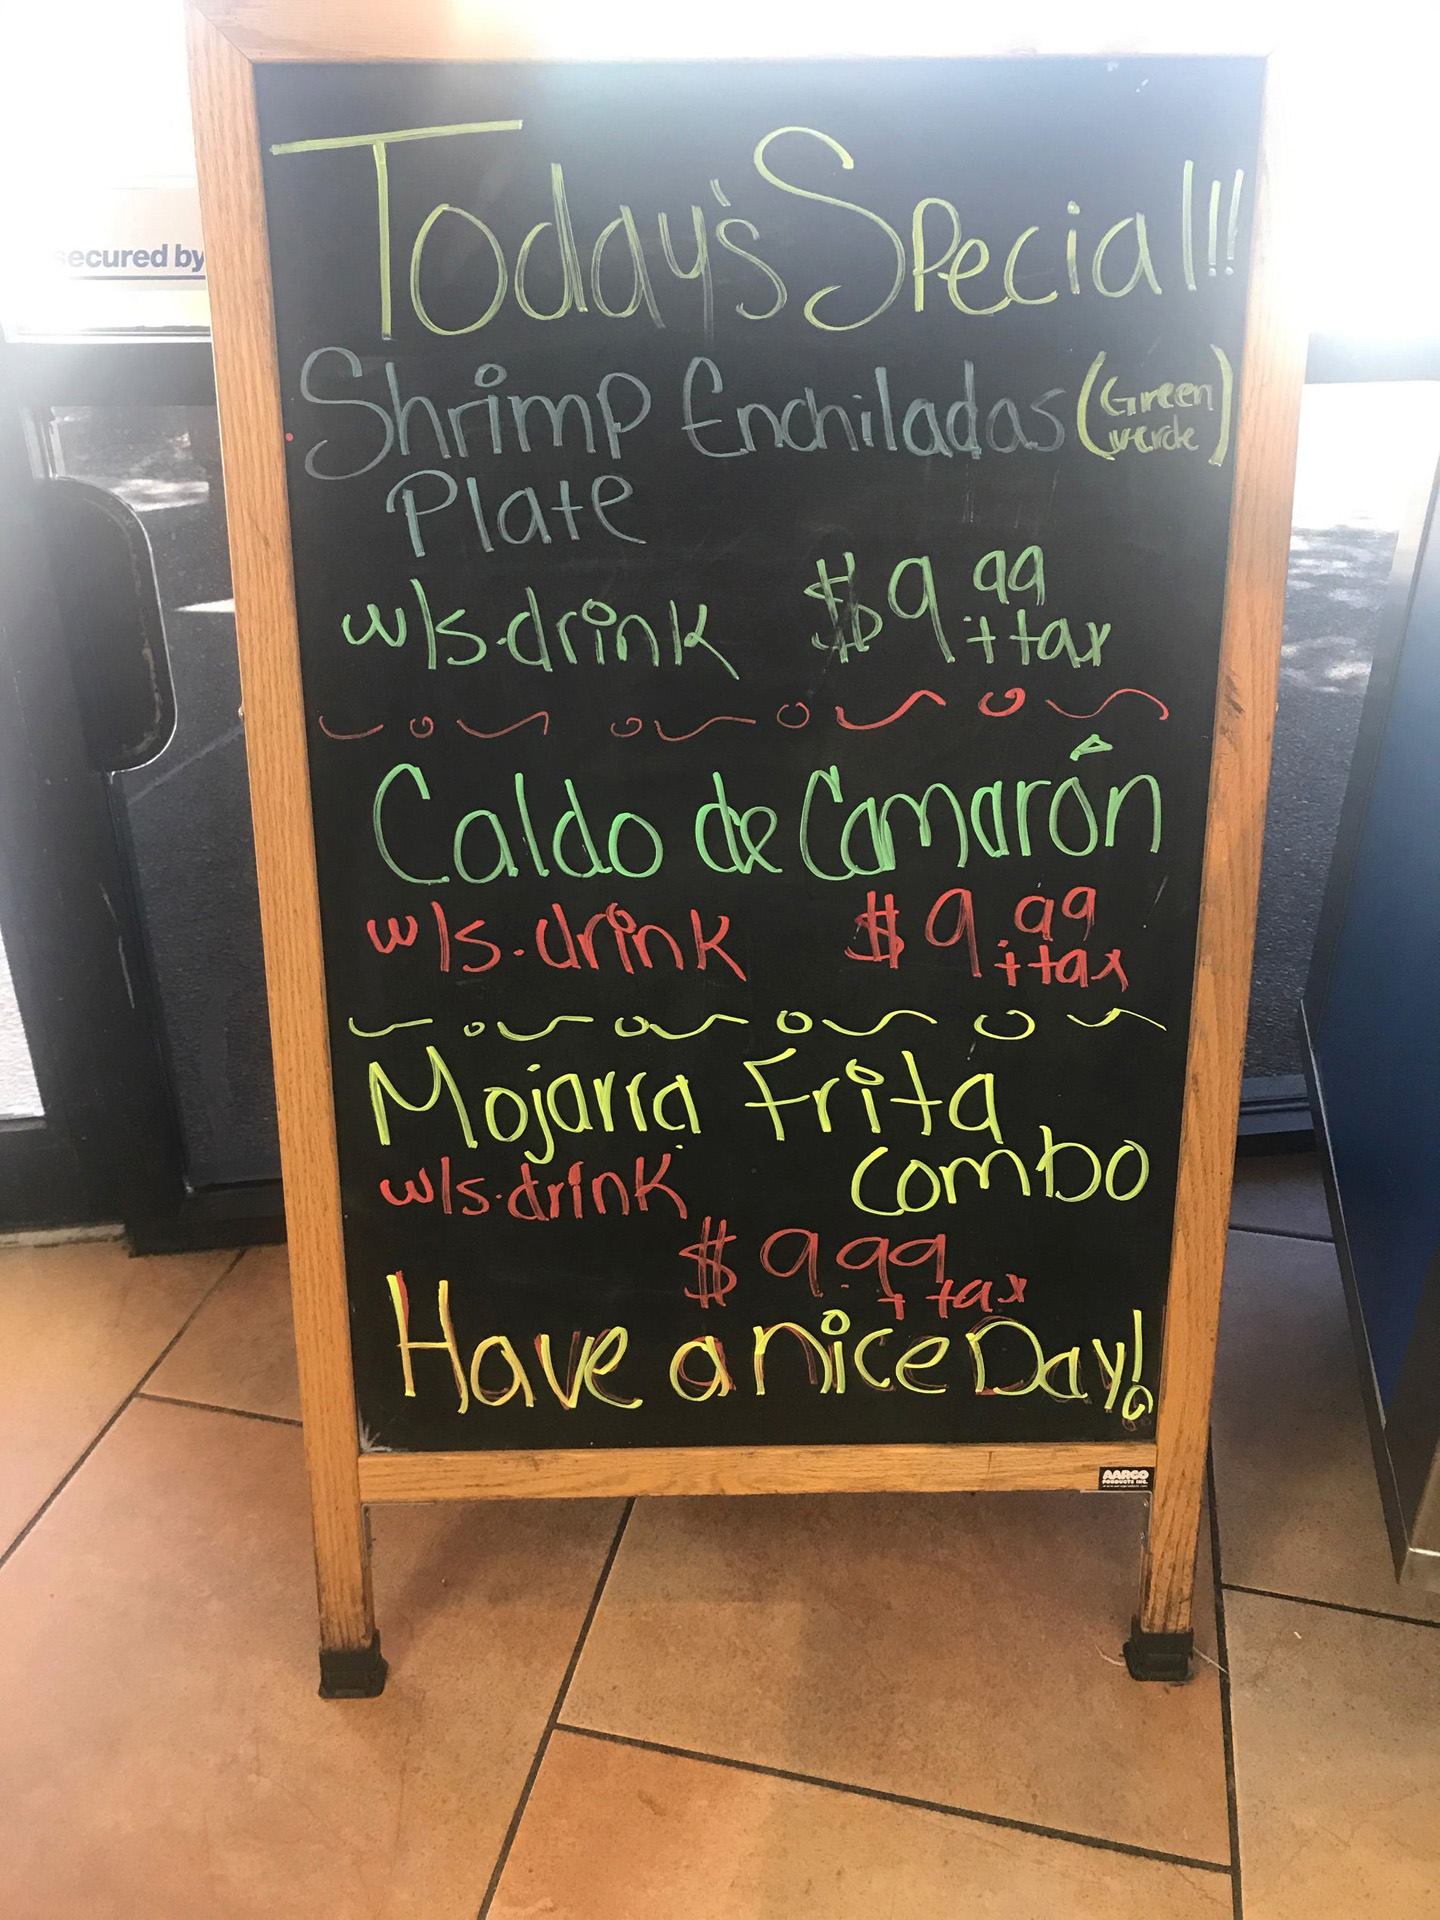 secured by
Today's Special!!!
Shrimp Enchiladas (Green verde)
Plate
w/s.drink $9.99 + tax
Caldo de Camarón
w/s.drink $9.99 + tax
Mojarra Frita
w/s.drink combo
$9.99 + tax
Have a nice Day!
AARCO
PRODUCTS INC.